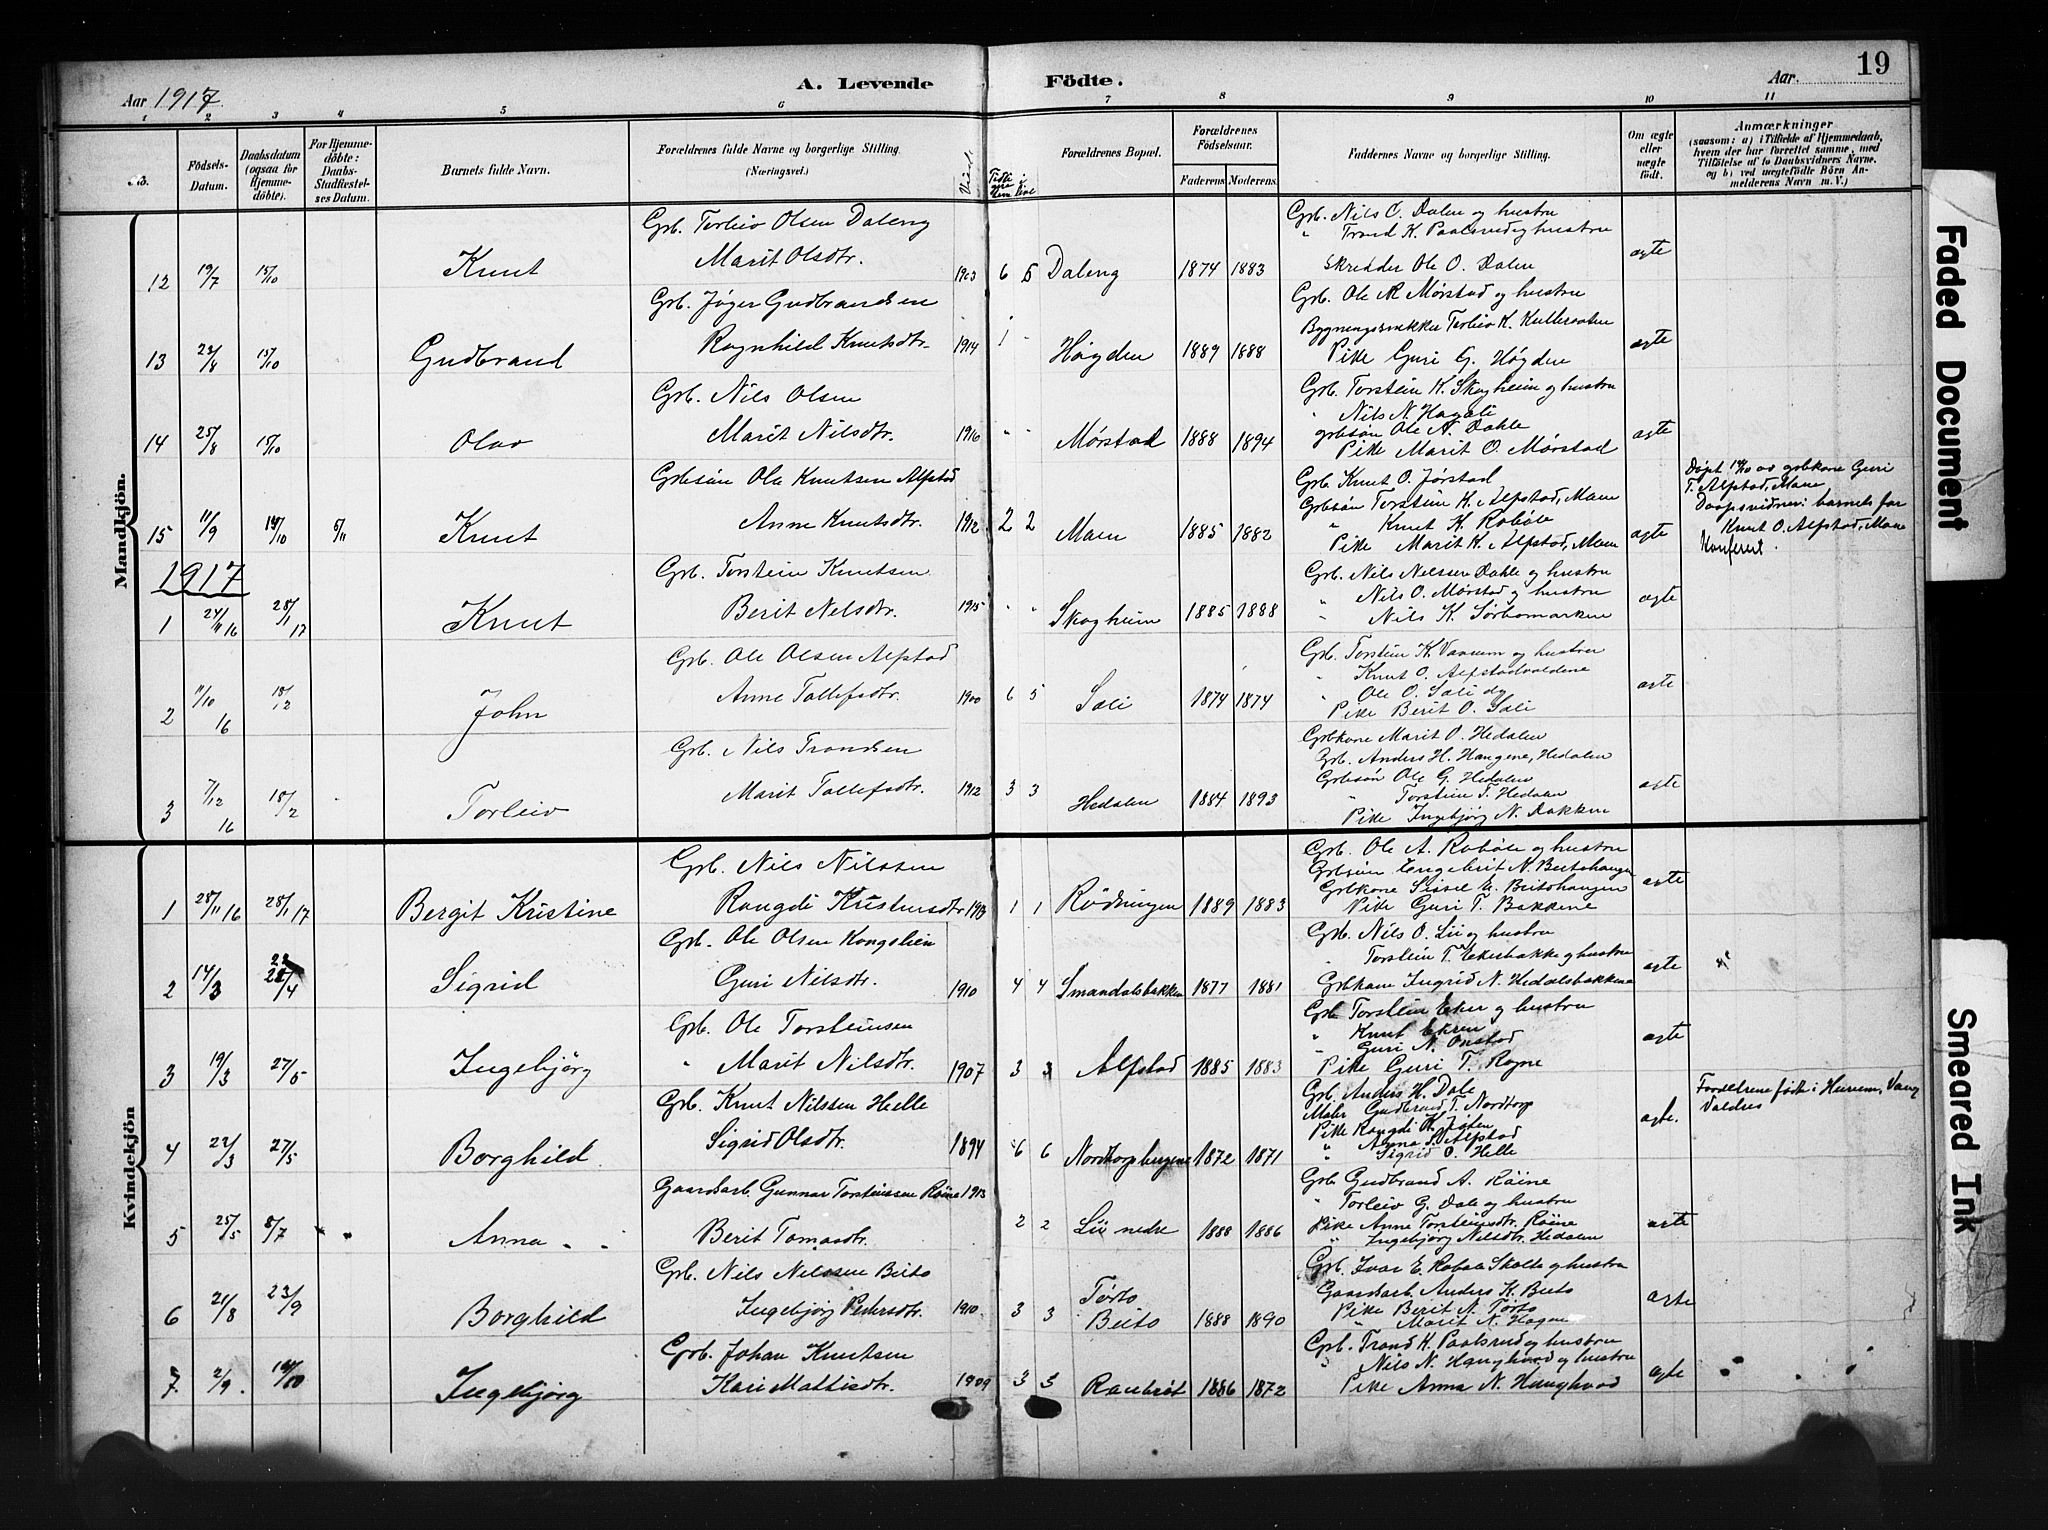 19
A. Levende Födte.
Aar 1917. Aar.
1 2 3 4 5 6 7 8 9 10 11
No.
Födsels-Datum.
Daabsdatum (ogsaa for Hjemmedöbte).
For Hjemmedöbte: Daabs-Stadfæstelses Datum.
Barnets fulde Navn.
Forældrenes fulde Navne og borgerlige Stilling. (Næringsvei.)
Forældrenes Bopæl.
Forældrenes Födselsaar.
Faderens. Moderens.
Faddernes Navne og borgerlige Stilling.
Om ægte eller uægte födt.
Anmærkninger
(saasom: a) i Tilfælde af Hjemmedaab, hvem der har forrettet samme, med Tilföielse af to Daabsvidners Navne, og b) ved uægtefödte Börn Anmelderens Navn m. V.)
Mandkjön.
Grb. Torleiv Olsen Daleng
Grb. Nils O. Dalen og hustru
" Trond K. Paalsrud og hustru
12 19/7 15/10 Knut Marit Olsdtr. 1903 6 5 Daleng 1874 1883 Skredder Ole O. Dalen ægte
Grb. Jøger Gudbrandsen
Grb. Ole N. Mørstad og hustru
Torleiv K.
13 23/8 15/10 Gudbrand Ragnhild Knutsdtr. 1914 1 " Høgden 1889 1888 Pike Guri G. Høgden ægte
Grb. Nils Olsen
Grb. Torstein K. Skogheim og hustru
" Nils N. Hagali
grbsøn Ole N. Dahle
14 25/8 15/10 Olav Marit Nilsdtr. 1916 " " Mørstad 1888 1894 Pike Marit O. Mørstad ægte
Grbsøn Ole Knutsen Alfstad
Grb. Knut O. Jørstad
Grbsøn Torstein K. Alfstad, Moen
" Knut K. Robøle
15 11/9 14/10 5/11 Knut Anne Knutsdtr. 1912 2 2 Moen 1885 1882 Pike Marit K. Alfstad, Moen ægte
Døpt 14/10 av grbkone Guri
T. Alfstad, Moen
Daapsvidner: barnets far
Knut O. Alfstad, Moen
Konferert.
1917
Grb. Torstein Knutsen
Grb. Nils Nelssen Dahle og hustru
" Nils O. Mørstad og hustru
1 24/11 16 28/1 17 Knut Berit Nilsdtr. 1915 " " Skogheim 1885 1888 " Nils K. Sørbomarken ægte
Grb. Ole Olsen Alfstad
Grb. Torstein K. og hustru
" Knut O. Alfstad
" Ole O. Soli
2 11/10 16 18/2 John Anne Tollefsdtr. 1900 6 5 Soli 1874 1874 Pike Berit O. Soli ægte
Grb. Nils Trondsen
Grbkone Marit O. Hedalen
Grb. Anders H. Haugene, Hedalen
Grbsøn Ole G. Hedalen
" Torstein T. Hedalen
3 7/12 16 18/2 Torleiv Marit Tollefsdtr. 1912 3 3 Hedalen 1884 1893 Pike Ingebjørg N. Bakken ægte
Kvindekjön
Grb. Nils Nilssen
Grb. Ole A. Robøle og hustru
Grbsøn Engebrit N. Beitohaugen
Grbkone Sissel E. Beitohaugen
1 28/11 16 28/1 17 Bergit Kristine Rangdi 1 1 Rødningen 1889 1883 Pike Guri T. Bakkene ægte
Grb. Ole Olsen Kongslien
Grb. Nils O. Lii og hustru
" Torstein T. Ekerbakke og hustru
2 14/3 22/4 Sigrid Guri Nilsdtr. 1910 4 4 Smaadalsbakken 1877 1881 Grbkone Ingrid N. Hedalsbakkene ægte
Grb. Ole Torsteinsen
Grb. Torstein Eker og hustru
" Knut Ekren
" Guri N. Onstad
3 19/3 27/5 Ingebjörg " Marit Nilsdtr. 1907 3 3 Alfstad 1885 1883 Pike Guri T. Rogne ægte
Grb. Knut Nilssen Helle
Grb. Anders H. Dale
Maler Gudbrand T. Nordtorp
Pike Rangdi K.
" Anna S. Alfstad
4 22/3 27/5 Borghild. Sigrid Olsdtr. 1894 6 6 Nordtorphaugene 1872 1871 " Sigrid O. Helle ægte.
Forældrene födte i Hurum, Vang
Valdres
Gaardarb. Gunnar Torsteinssen Röine 1913
Grb. Gudbrand A. Röine
" Torleiv G. Dale og hustru
Pike Anne Torsteinsdtr. Röine
5 25/5 8/7 Anna Berit Tomasdtr. 2 2 Lii nedre 1888 1886 " Ingebjörg Nilsdtr. Hedalen ægte
Grb. Nils Nilssen Beito
Grb. Ivar E. Robøle Skolte og hustru
Gaardarb. Anders K. Beito
Pike Berit N. Tørto
6 21/8 23/9 Borghild Ingebjörg Pedersdtr. 1910. 3 3 Tørto Beito 1888 1890 " Marit N. Hagen ægte
Grb. Johan Knutsen
Grb. Trond K. Paalsrud og hustru
" Nils N. Haughvod og hustru
7. 2/9. 14/10 Ingebjörg Kari Mattisdtr. 1909 3 3 1886 1872 Pike Anna N. Haughvod ægte
Faded Document
Smeared Ink